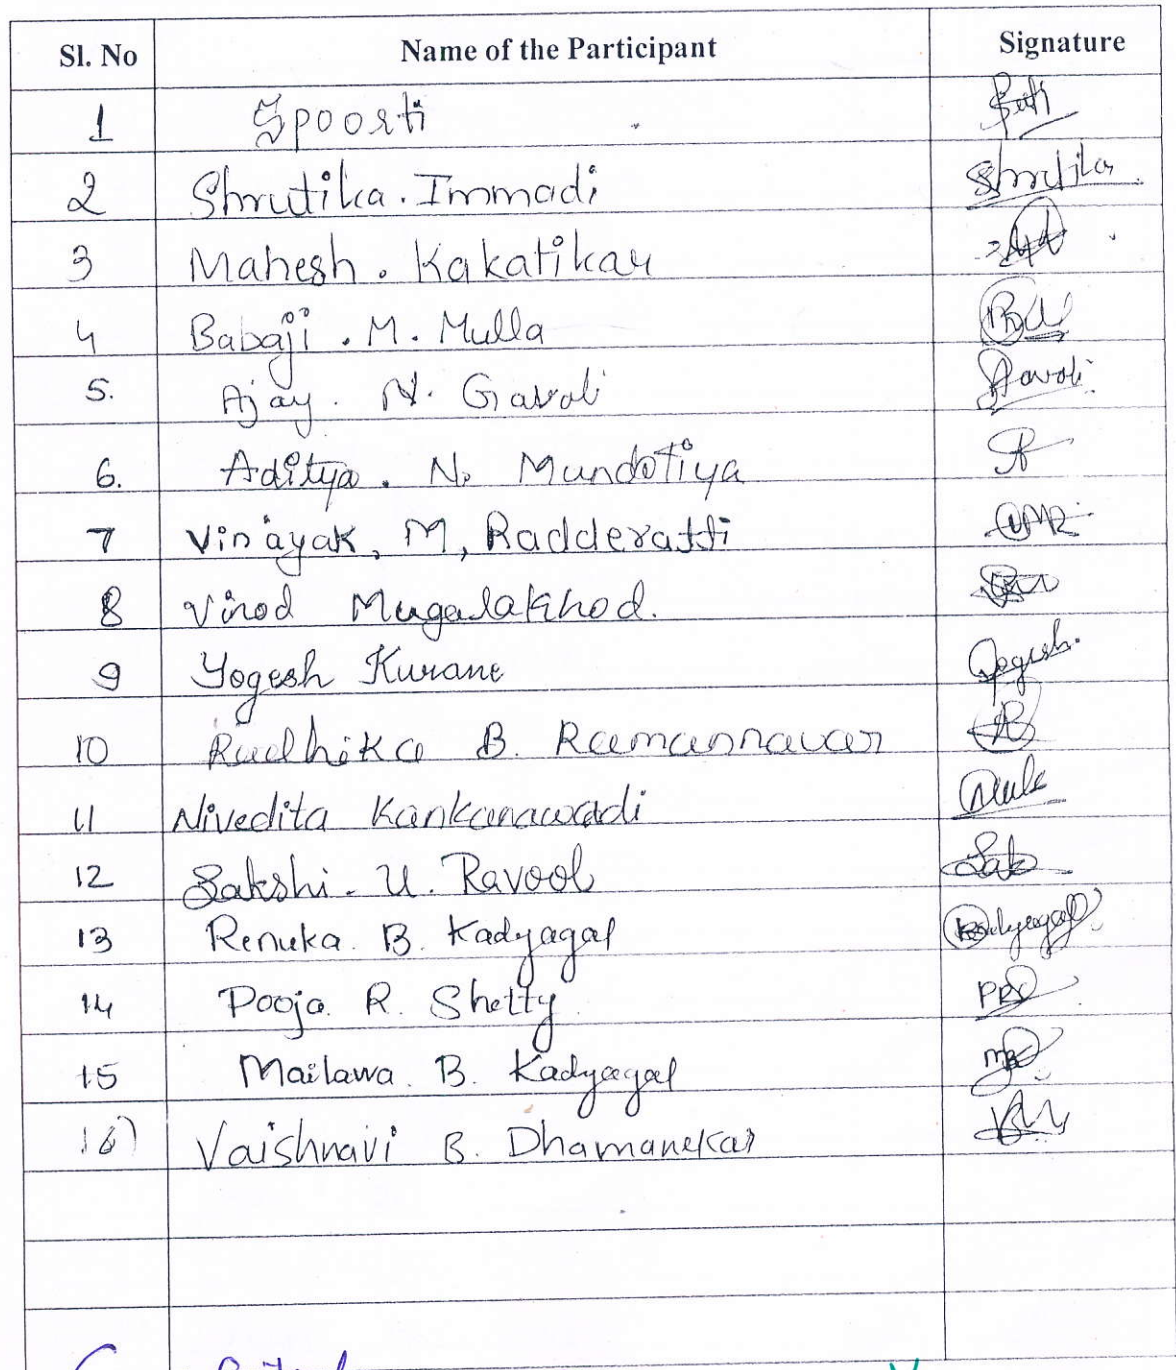 Sl. No Name of the Participant Signature
1 Spoorti
2 Shrutika. Immadi Shrutika.
3 Mahesh. Kakatikar
4 Babaji. M. Mulla
5. Ajay. N. Gavali Gavali
6. Aditya. N. Mundotiya
7 Vinayak, M, Radderatti VMR
8 Vinod Mugalakhod.
9 Yogesh Kurane Yogesh.
10 Radhika B. Ramannavar
11 Nivedita Kankanawadi
12 Sakshi. U. Ravool
13 Renuka. B. Kadyagal Kadyagal
14 Pooja. R. Shetty
15 Mailawa. B. Kadyagal
16) Vaishnavi B. Dhamanekar